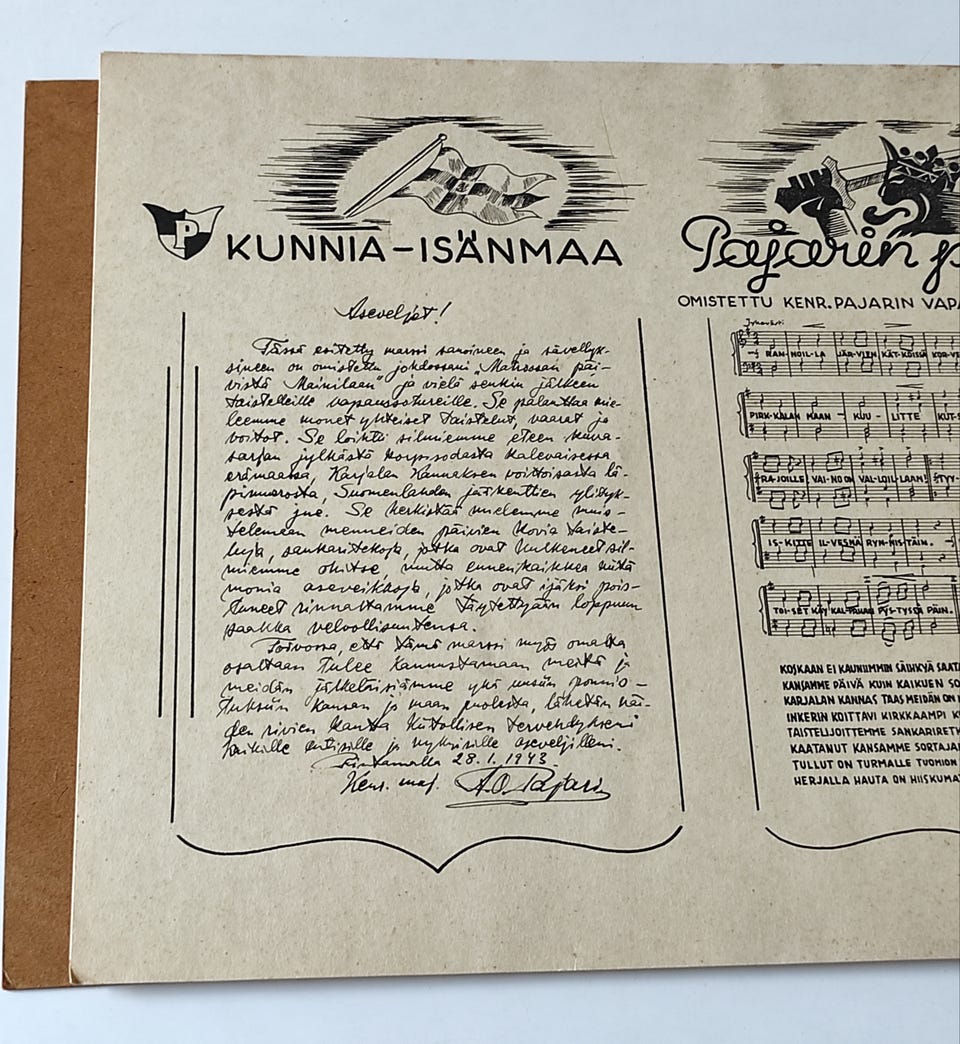 P
KUNNIA-ISÄNMAA
Aseveljet!
Tässä esitetty marssi sanoineen ja sävellyk-
sineen on omistettu johdossani "Matrossan päi-
vistä Mainilaan" ja vielä senkin jälkeen
taistelleille vapaussotureille. Se palauttaa mie-
leemme monet yhteiset taistelut, vaarat ja
voitot. Se loihtii silmiemme eteen kuva-
sarjan jylhästä korpisodasta Kalevaisessa
erämaassa, Karjalan Kannaksen voittoisasta lä-
pimurrosta, Suomenlahden jääkenttien ylityk-
sestä jne. Se herkistää mielemme muis-
telemaan menneiden päivien kovia taiste-
luja, sankaritekoja, jotka ovat kulkeneet sil-
miemme ohitse, mutta ennenkaikkea niitä
monia aseveikkoja, jotka ovat ijäksi pois-
tuneet rinnaltamme täytettyään loppuun
saakka velvollisuutensa.
Toivossa, että tämä marssi myös omalta
osaltaan tulee kannustamaan meitä ja
meidän jälkeläisiämme yhä uusiin ponnis-
tuksiin kansan ja maan puolesta, lähetän näi-
den rivien kautta kiitollisen tervehdykseni
kaikille entisille ja nykyisille aseveljilleni.
Rintamalla 28.1.1943.
Kenr. maj. A.O. Pajari
Pajarin p
OMISTETTU KENR. PAJARIN VAPA
RAN-NOIL-LA JÄR-VIEN KÄT-KÖISSÄ KOR-VE
PIRK-KALAN MAAN - KUU - LITTE KUT-S
RA-JOILLE VAI-NO ON VAL-LOIL-LAAN! TYY-
IS-KITTE IL-VESNÄ RYN-NIS-TÄIN.
TOI-SET KÄY KAL-PAHAN PYS-TYSSÄ PÄIN.
KOSKAAN EI KAUNIIMMIN SÄIHKYÄ SAATA
KANSAMME PÄIVÄ KUIN KAIKUEN SO
KARJALAN KANNAS TAAS MEIDÄN ON
INKERIN KOITTAVI KIRKKAAMPI K
TAISTELIJOITTEMME SANKARIRETK
KAATANUT KANSAMME SORTAJAN
TULLUT ON TURMALLE TUOMION
HERJALLA HAUTA ON HIISKUMAT